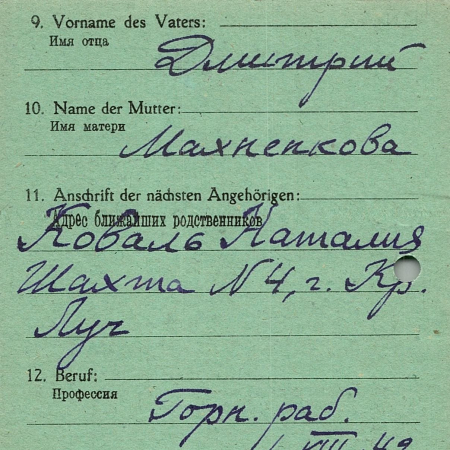 9. Vorname des Vaters:
Имя отца
Дмитрий
10. Name der Mutter:
Имя матери
Махненкова
11. Anschrift der nächsten Angehörigen:
Адрес ближайших родственников
Коваль Наталия
Шахта N 4, г. Кр.
Луч
12. Beruf:
Профессия
Горн. раб.
VIII 42